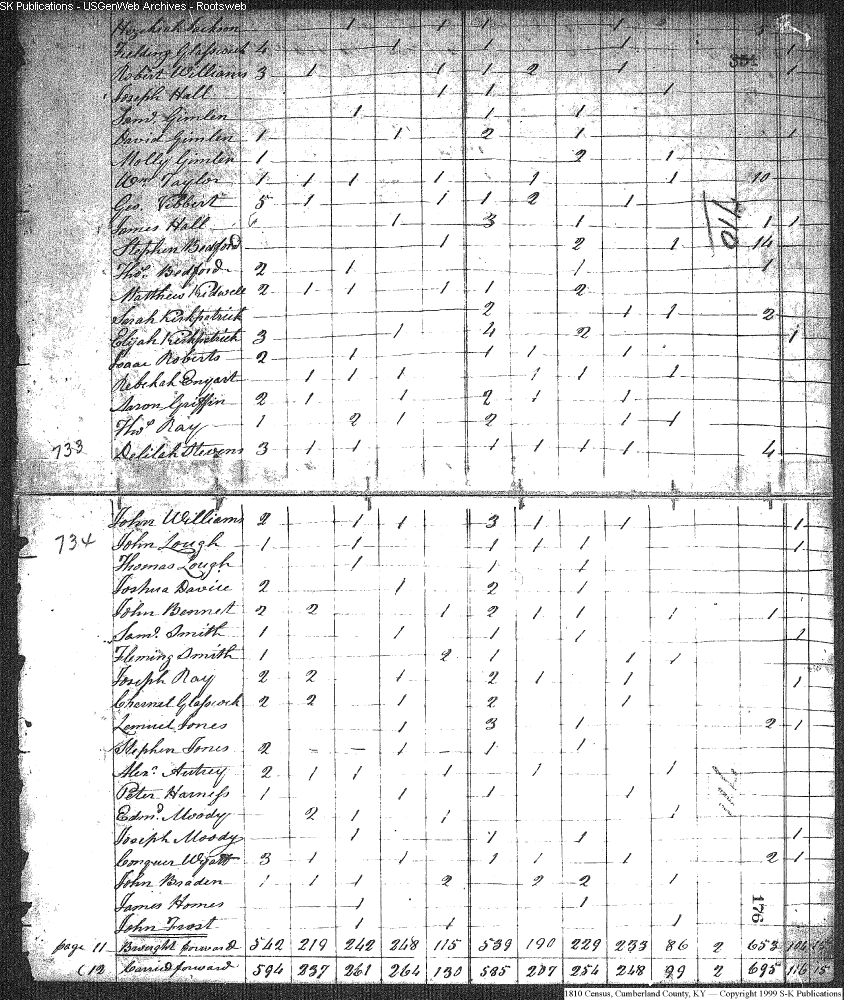 SK Publications - USGenWeb Archives - Rootsweb
Hezekiah Jackson 1 1 1 1 5
Fielding Glasscock 4 1 1 1 1
Robert Williams 3 1 1 1 2 1 1
Joseph Hall 1 1 1
Samd. Gimlen 1 1 1
David Gimlen 1 1 2 1 1
Molly Gimlen 1 2 1
Wm Taylor 1 1 1 1 1 1 10
Geo. Vibbert 5 1 1 1 2 1
James Hall 1 3 1 1 1
Stephen Bedford 1 2 1 14
Thos. Bedford 2 1 1 1
Matthew Kidwell 2 1 1 1 1 2
Sarah Kirkpatrick 2 1 1 2
Elijah Kirkpatrick 3 1 4 2 1
Isaac Roberts 2 1 1 1 1
Rebekah Enyart 1 1 1 1 1 1
Aaron Griffin 2 1 1 2 1 1
Thos Ray 1 2 1 2 1 1
733 Delilah Stevens 3 1 1 1 1 1 1 4
John Williams 2 1 1 3 1 1 1
734 John Lough 1 1 1 1 1 1
Thomas Lough 1 1 1
Joshua Davice 2 1 2 1
John Bennet 2 2 1 2 1 1 1 1
Samd. Smith 1 1 1 1 1
Fleming Smith 1 2 1 1 1
Joseph Ray 2 2 1 2 1 1 1
Chesnel Glasscock 2 2 1 2 1
Lemuel Jones 1 3 1 2 1
Stephen Jones 2 - - 1 1 1
Alexr. Autrey 2 1 1 1 1 1
Peter Harness 1 1 1 1
Edmd. Moody 2 1 1 1
Joseph Moody 1 1 1 1
Conquer Wyatt 3 1 1 1 1 1 2 1
John Braden 1 1 1 2 2 2 1
James Homes 1 1
John Frost 1 1 1
176
page 11 Brought forward 542 219 242 248 115 539 190 229 233 86 2 653 104 15
(12 Carried forward 594 237 261 264 130 585 207 254 248 99 2 695 116 15
1810 Census, Cumberland County, KY — Copyright 1999 S-K Publications